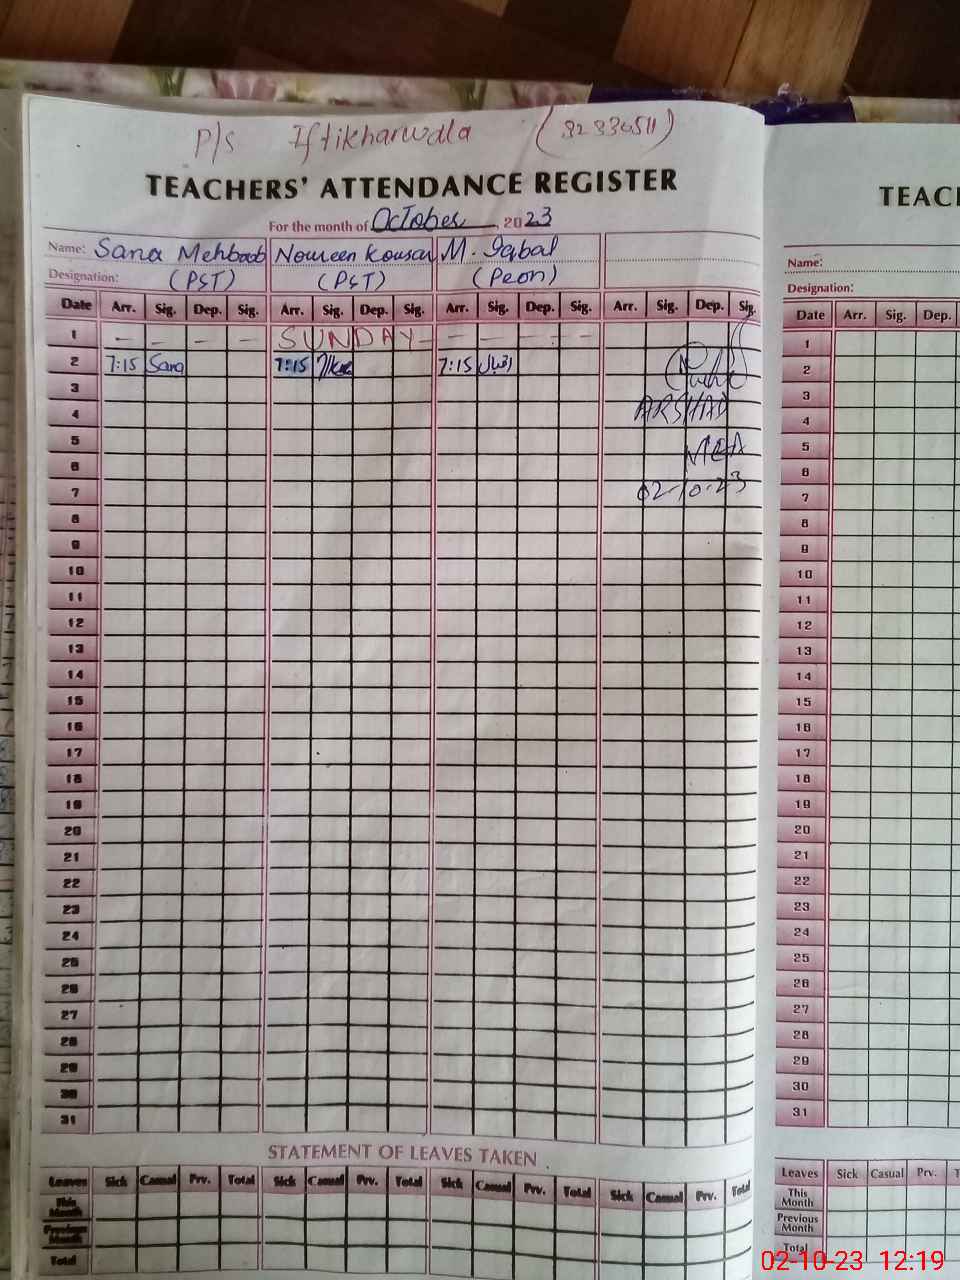 P/S Iftikharwala (32330511)
TEACHERS' ATTENDANCE REGISTER
For the month of October, 2023
Name: Sana Mehboob Noureen Kousar M. Iqbal
Designation: (PST) (PST) (Peon)
Date Arr. Sig. Dep. Sig. Arr. Sig. Dep. Sig. Arr. Sig. Dep. Sig. Arr. Sig. Dep. Sig.
1 – – – – SUNDAY – – – – –
2 7:15 Sana 7:15 7:15 اقبال
3
4 ARSHAD
5
6 MEA
7 02-10-23
8
9
10
11
12
13
14
15
16
17
18
19
20
21
22
23
24
25
26
27
28
29
30
31
STATEMENT OF LEAVES TAKEN
Leaves Sick Casual Prv. Total Sick Casual Prv. Total Sick Casual Prv. Total Sick Casual Prv. Total
This Month
Previous Month
Total
TEAC
Name:
Designation:
Date Arr. Sig. Dep.
1
2
3
4
5
6
7
8
9
10
11
12
13
14
15
16
17
18
19
20
21
22
23
24
25
26
27
28
29
30
31
Leaves Sick Casual Prv. T
This Month
Previous Month
Total
02-10-23 12:19